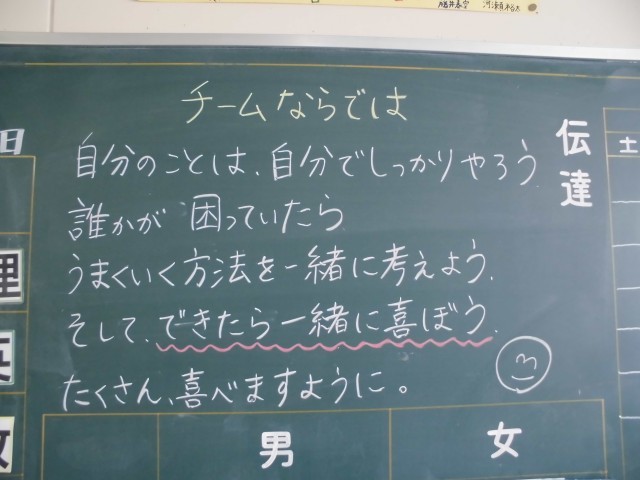 チームならでは
自分のことは、自分でしっかりやろう
誰かが 困っていたら
うまくいく方法を一緒に考えよう.
そして、できたら一緒に喜ぼう.
たくさん、喜べますように。
伝達
土
日
理
男
女